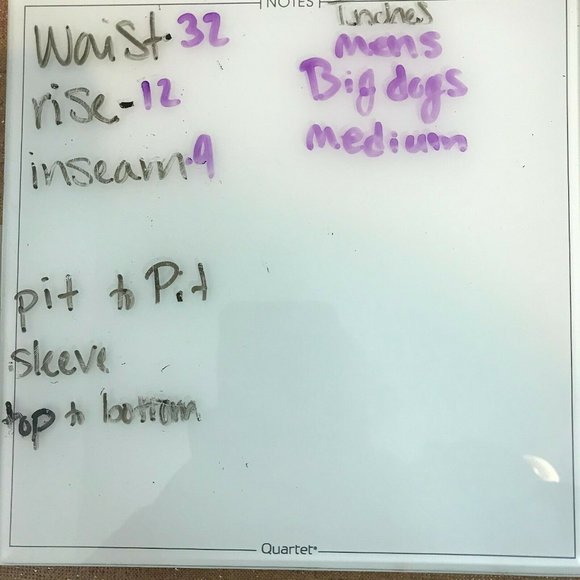 NOTES
Inches
Waist-32
mens
Big dogs
rise-12
medium
inseam-9
pit to Pit
sleeve
top to bottom
Quartet®